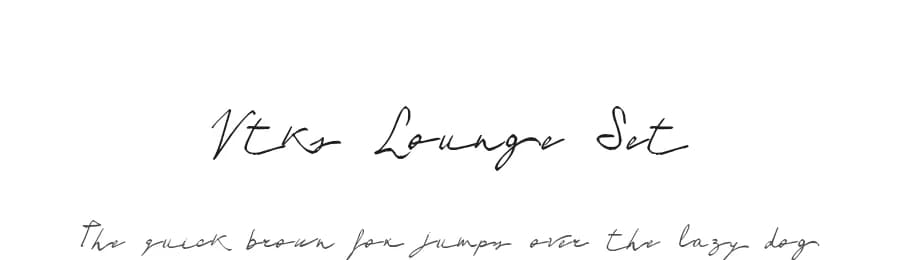 Vtks Lounge Set
The quick brown fox jumps over the lazy dog